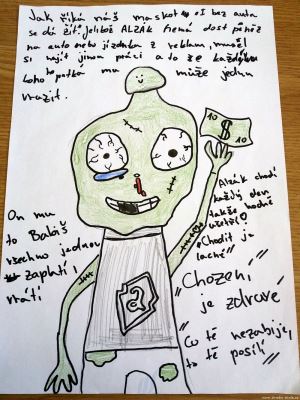 Jak říká náš maskot „I bez auta
se dá žít" jelikož ALZÁK nemá dost peněz
na auto nebo jízdenku z reklam, musel
si najít jinou práci a to že každýmu
koho potka mu může jednu
vrazit.
10 $ 10
Alzák chodí
každý den
takže hodně
ušetří!
„Chodit je
laché"
On mu
to Babiš
všechno jednou
zaplatí,
vrátí
a
„Chození
je zdravé"
„Co tě nezabije,
to tě posílí"